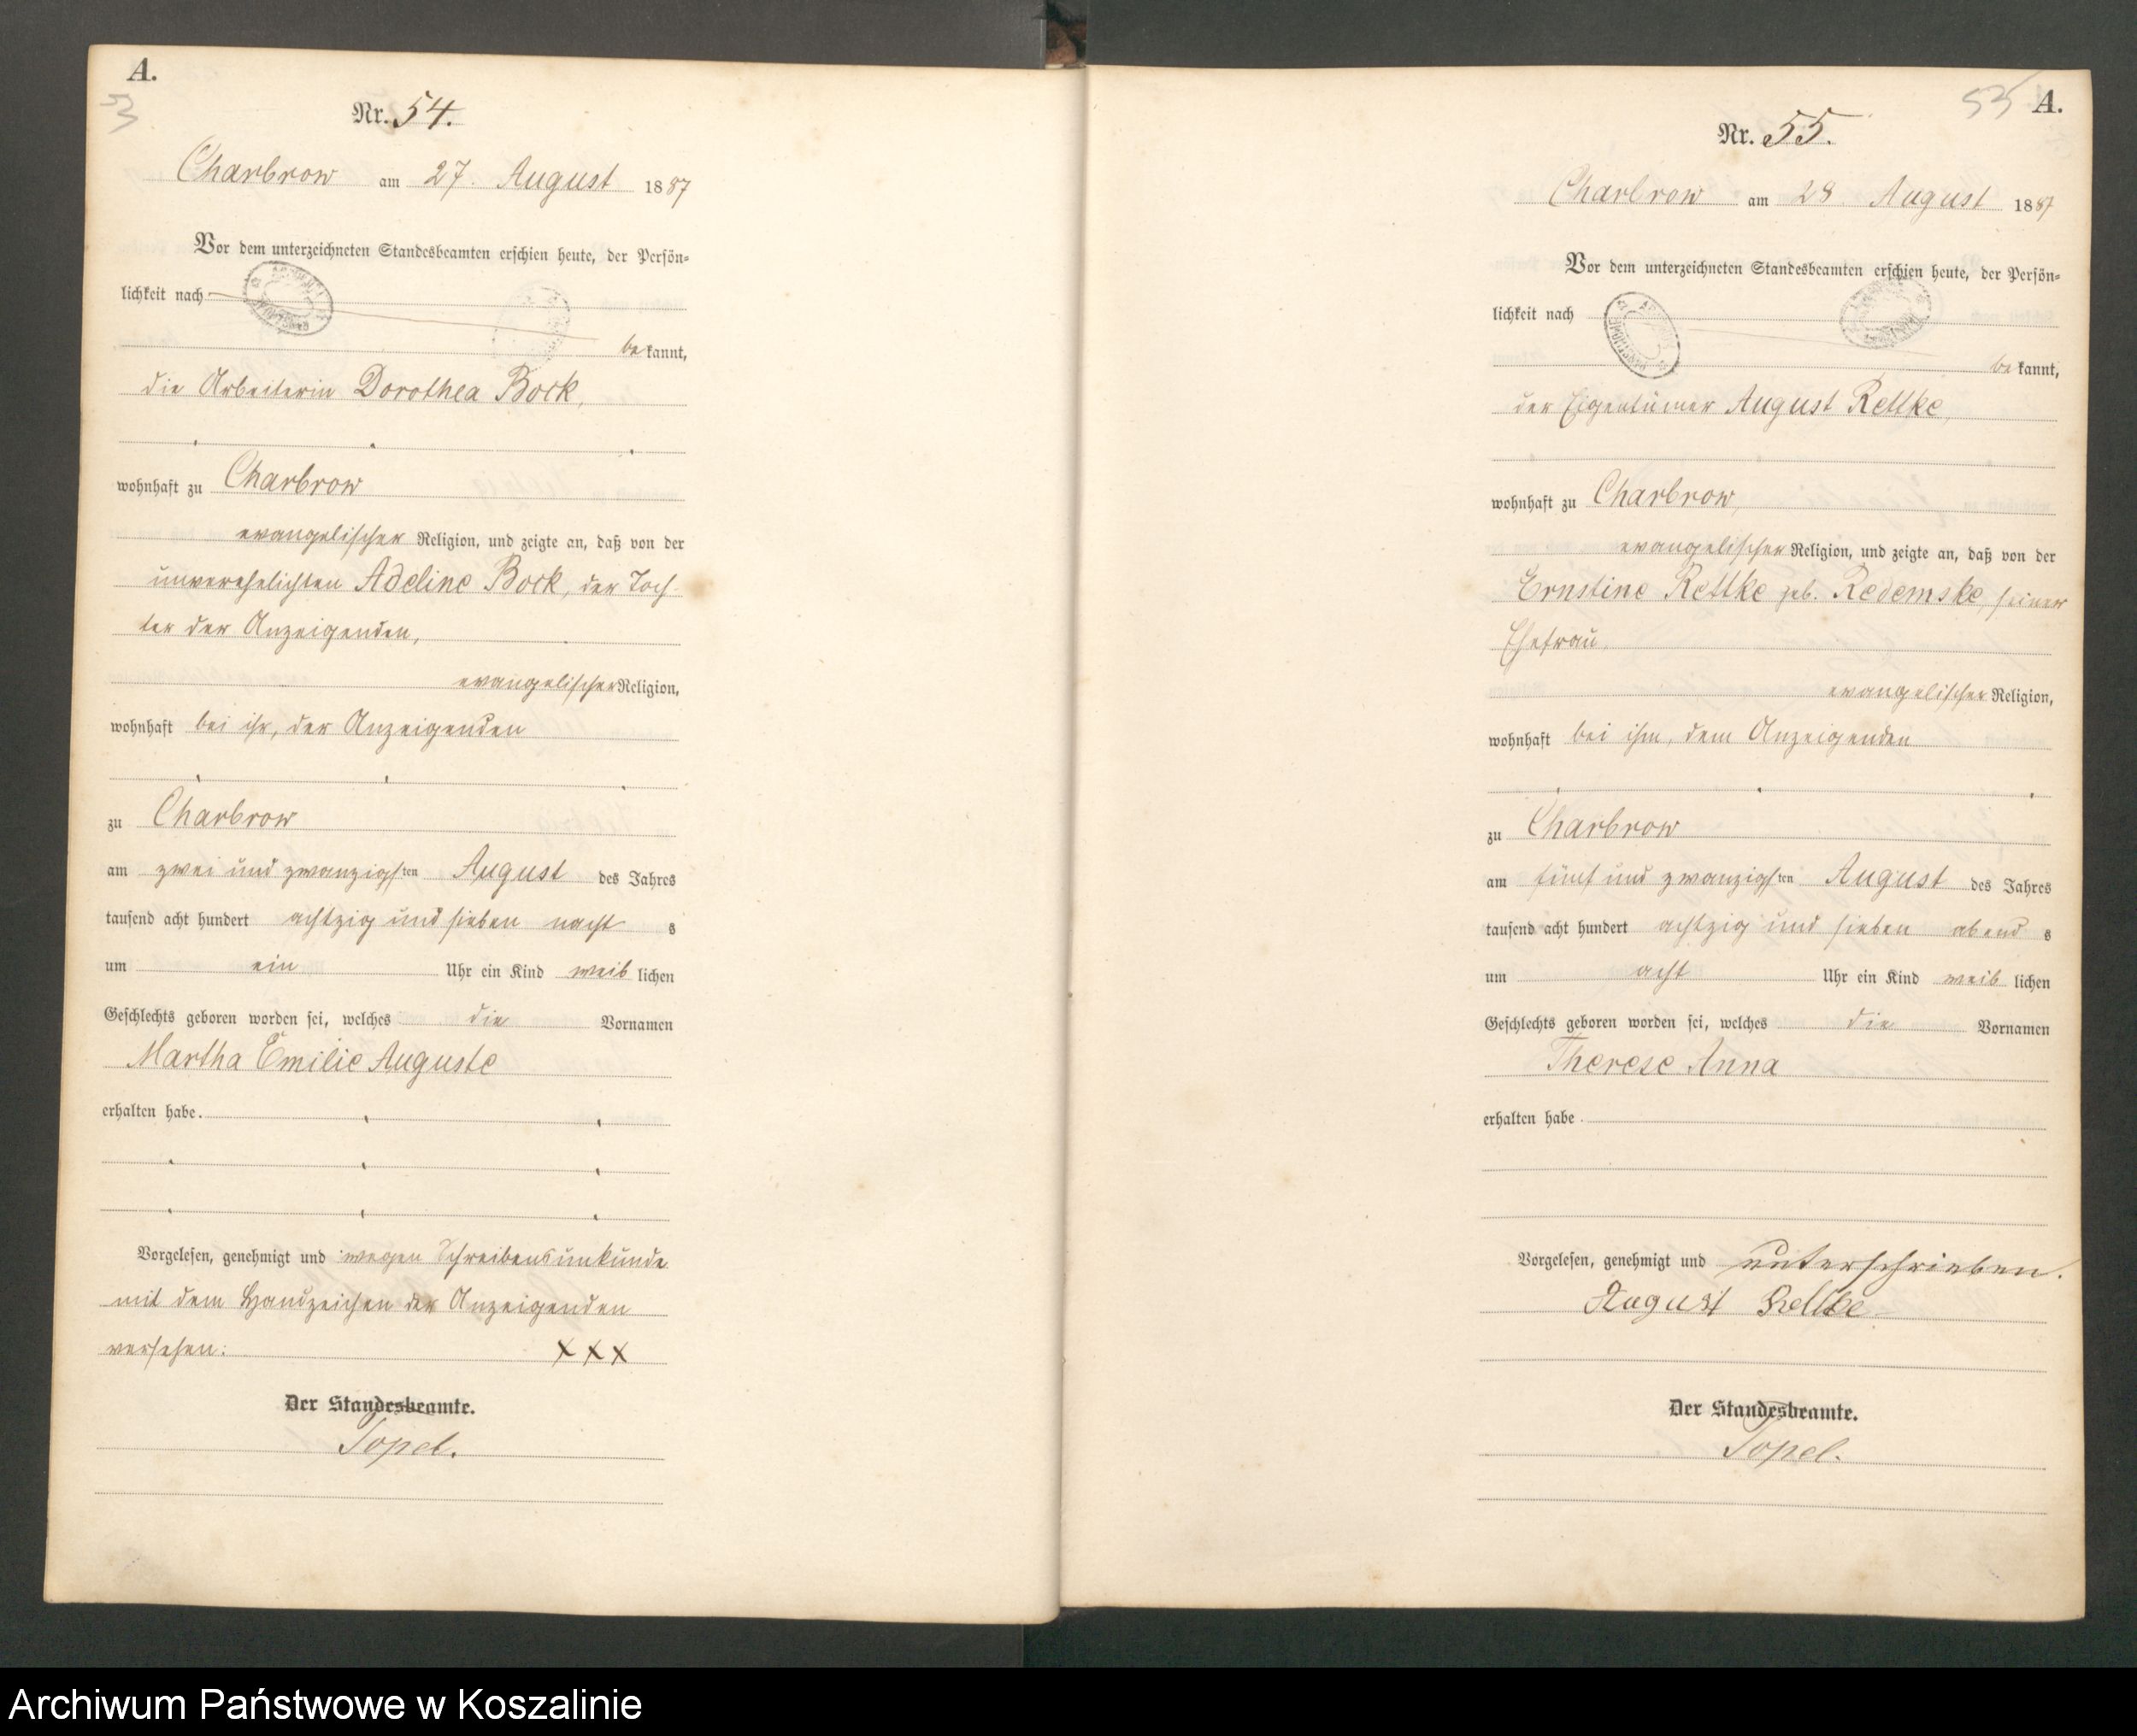 A.
53
Nr. 54.
Charbrow am 27. August 1887
Vor dem unterzeichneten Standesbeamten erschien heute, der Persön-
lichkeit nach
bekannt,
die Arbeiterin Dorothea Bock,
wohnhaft zu Charbrow
evangelischer Religion, und zeigte an, daß von der
unverehelichten Adeline Bock, der Toch-
ter der Anzeigenden,
evangelischer Religion,
wohnhaft bei ihr, der Anzeigenden
zu Charbrow
am zwei und zwanzigsten August des Jahres
tausend acht hundert achtzig und sieben nachts
um ein Uhr ein Kind weiblichen
Geschlechts geboren worden sei, welches die Vornamen
Martha Emilie Auguste
erhalten habe.
Vorgelesen, genehmigt und wegen Schreibensunkunde
mit dem Handzeichen der Anzeigenden
versehen: XXX
Der Standesbeamte.
Topel.
53 A.
Nr. 55.
Charbrow am 28 August 1887
Vor dem unterzeichneten Standesbeamten erschien heute, der Persön-
lichkeit nach
bekannt,
der Eigentümer August Rettke,
wohnhaft zu Charbrow,
evangelischer Religion, und zeigte an, daß von der
Ernstine Rettke geb. Redemske, seiner
Ehefrau,
evangelischer Religion,
wohnhaft bei ihm, dem Anzeigenden
zu Charbrow
am fünf und zwanzigsten August des Jahres
tausend acht hundert achtzig und sieben abends
um acht Uhr ein Kind weiblichen
Geschlechts geboren worden sei, welches die Vornamen
Therese Anna
erhalten habe.
Vorgelesen, genehmigt und unterschrieben.
August Rettke
Der Standesbeamte.
Topel.
Archiwum Państwowe w Koszalinie